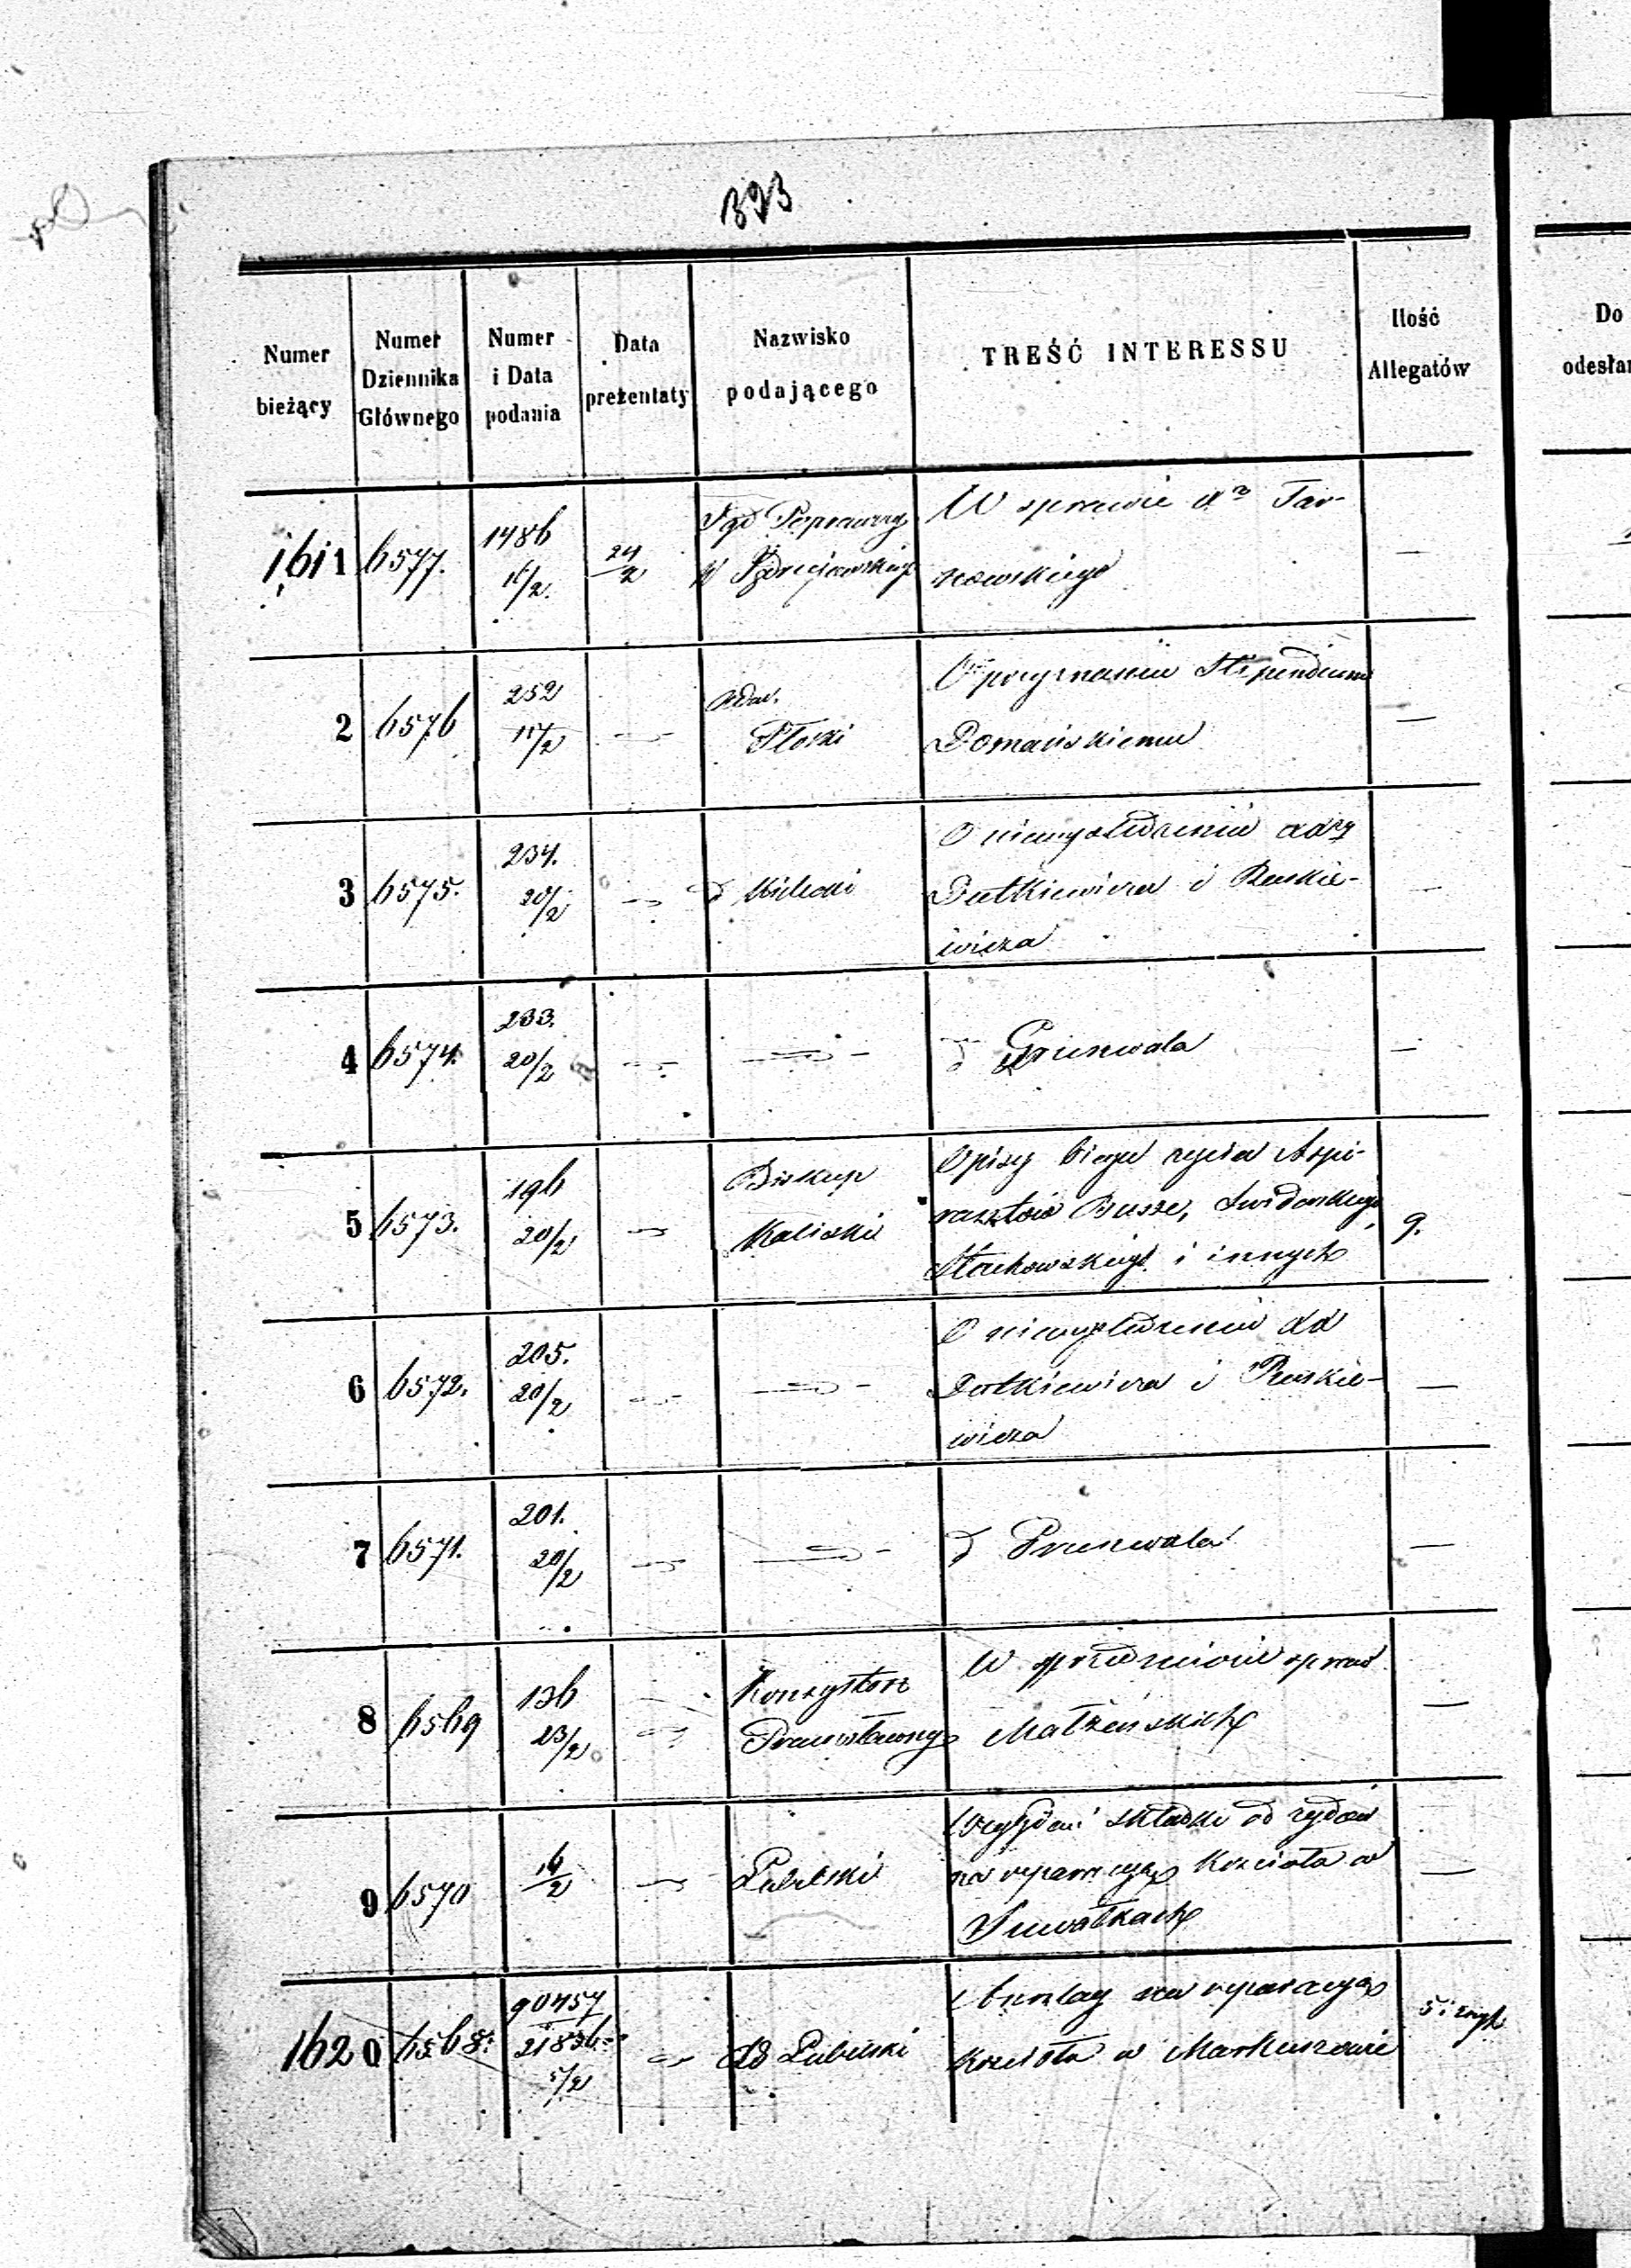 323
Numer bieżący
Numer Dziennika Głównego
Numer i Data podania
Data prezentaty
Nazwisko podającego
TREŚĆ INTERESSU
Ilość Allegatów
Do
odesła
1611 6577. 1486 24/2 Sąd Poprawczy W sprawie Tar-
nowskiego —
2 6576 252 17/2 — Płocki O przyznaniu Stipendium
Domańskiemu —
3 6575. 234. 20/2 — Kielecki
Dutkiewicza i Ruskie-
wicza —
4 6574. 233. 20/2 — — Grunwala —
5 6573. 196 20/2 — Biskup Kaliski Opisy biegu życia Aspi-
rantów Busse, Swiderskiego 9.
Stachowskiego i innych
6 6572. 205. 20/2 — —
Dutkiewicza i Ruskie-
wicza —
7 6571. 201. 20/2 — — Grunwala —
8 6569 136 23/2 — Konsystorz Prawosławny W przedmiocie spraw
Małżeńskich —
9 6570 16/2 — Lubelski składki od żydów
na reparacyą Kościoła w
Suwałkach —
1620 6568. 90757 21836 5/2 — Lubelski Anszlag na reparacyą
Kościoła w Markuszowie